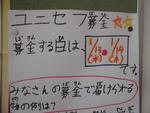 ユニセフ募金
募金する日は、1/13(水)・1/14(木)です。
みなさんの募金で届けられる
物の例は?